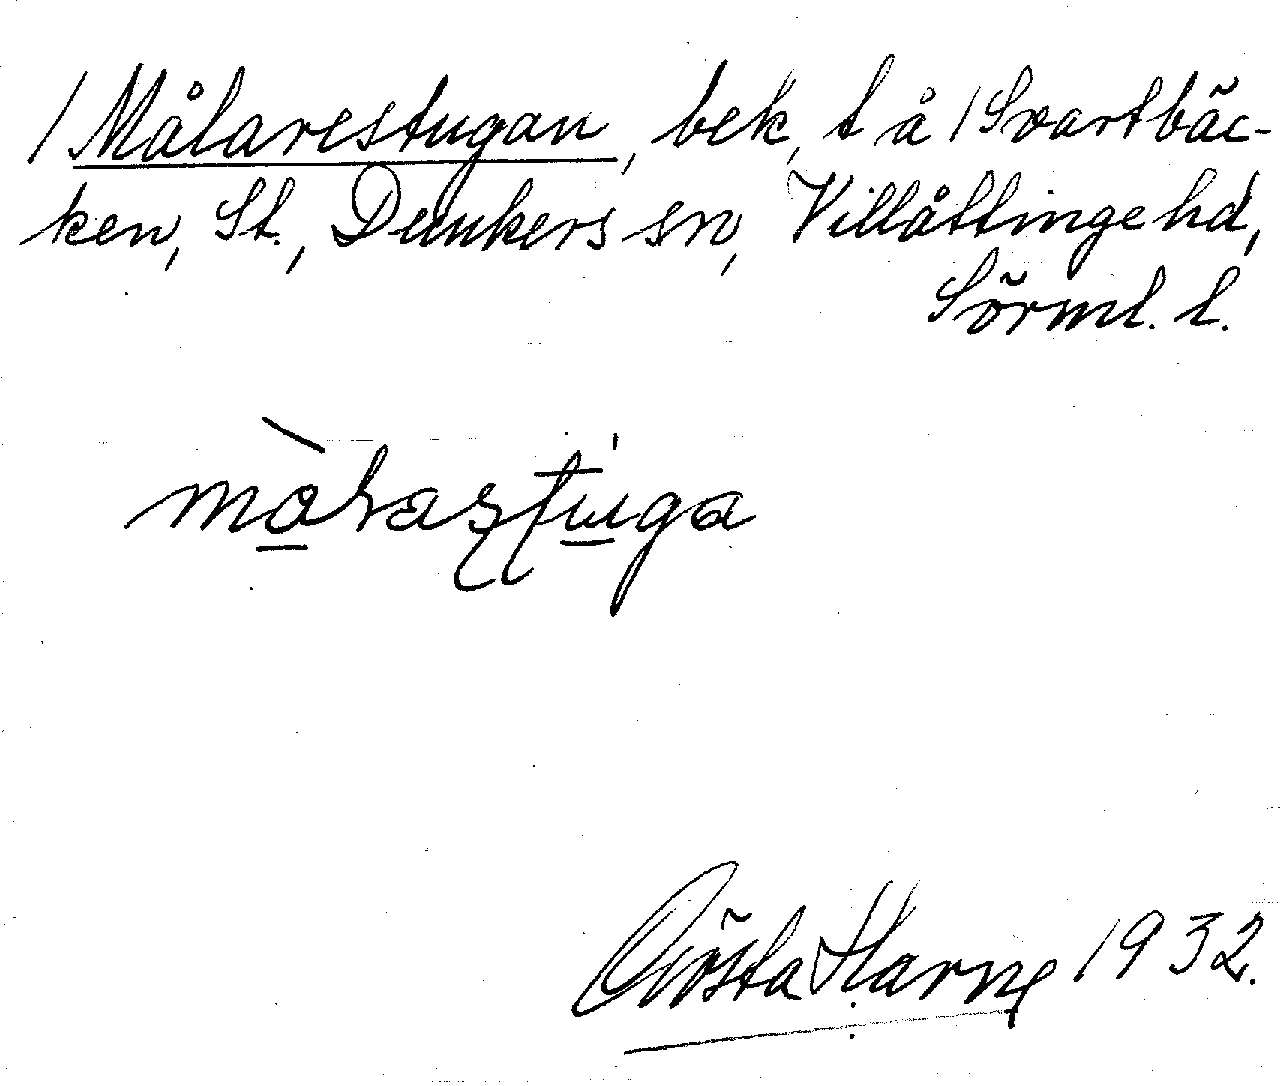 /Målarestugan, bek, t å /Svartbäc-
ken, St., Dunkers sn, Villåttinge hd,
Sörml. l.
Gösta Harne 1932.